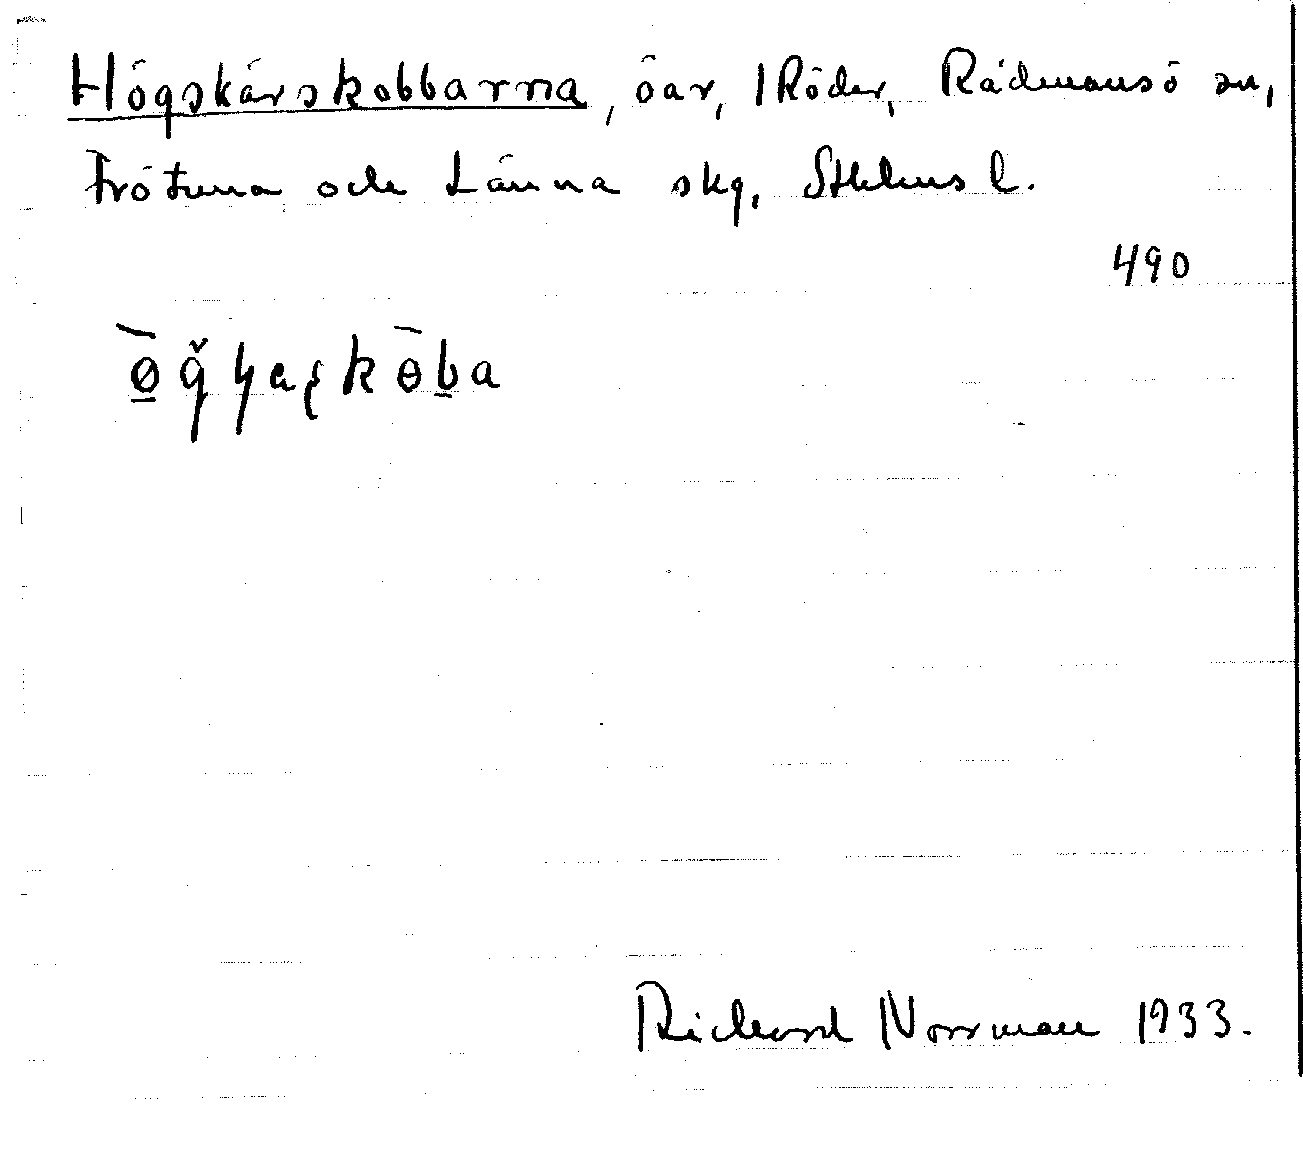 Högskärskobbarna, öar, 1 Röder, Rådmansö sn,
Frötuna och Länna skg, Sthlms l.
490
Richard Norrman 1933.